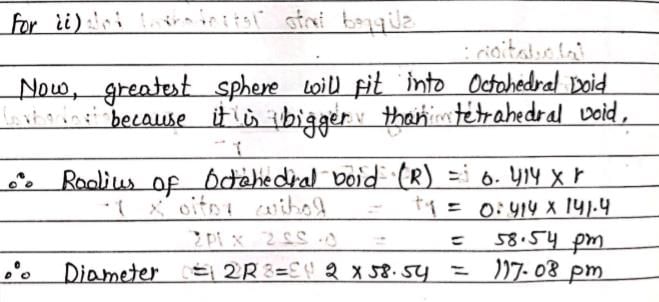 For ii)
Now, greatest sphere will fit into Octahedral void
because it is bigger than tetrahedral void.
∴ Radius of Octahedral void (R) = 0.414 × r
= 0.414 × 141.4
= 58.54 pm
∴ Diameter = 2R = 2 × 58.54 = 117.08 pm